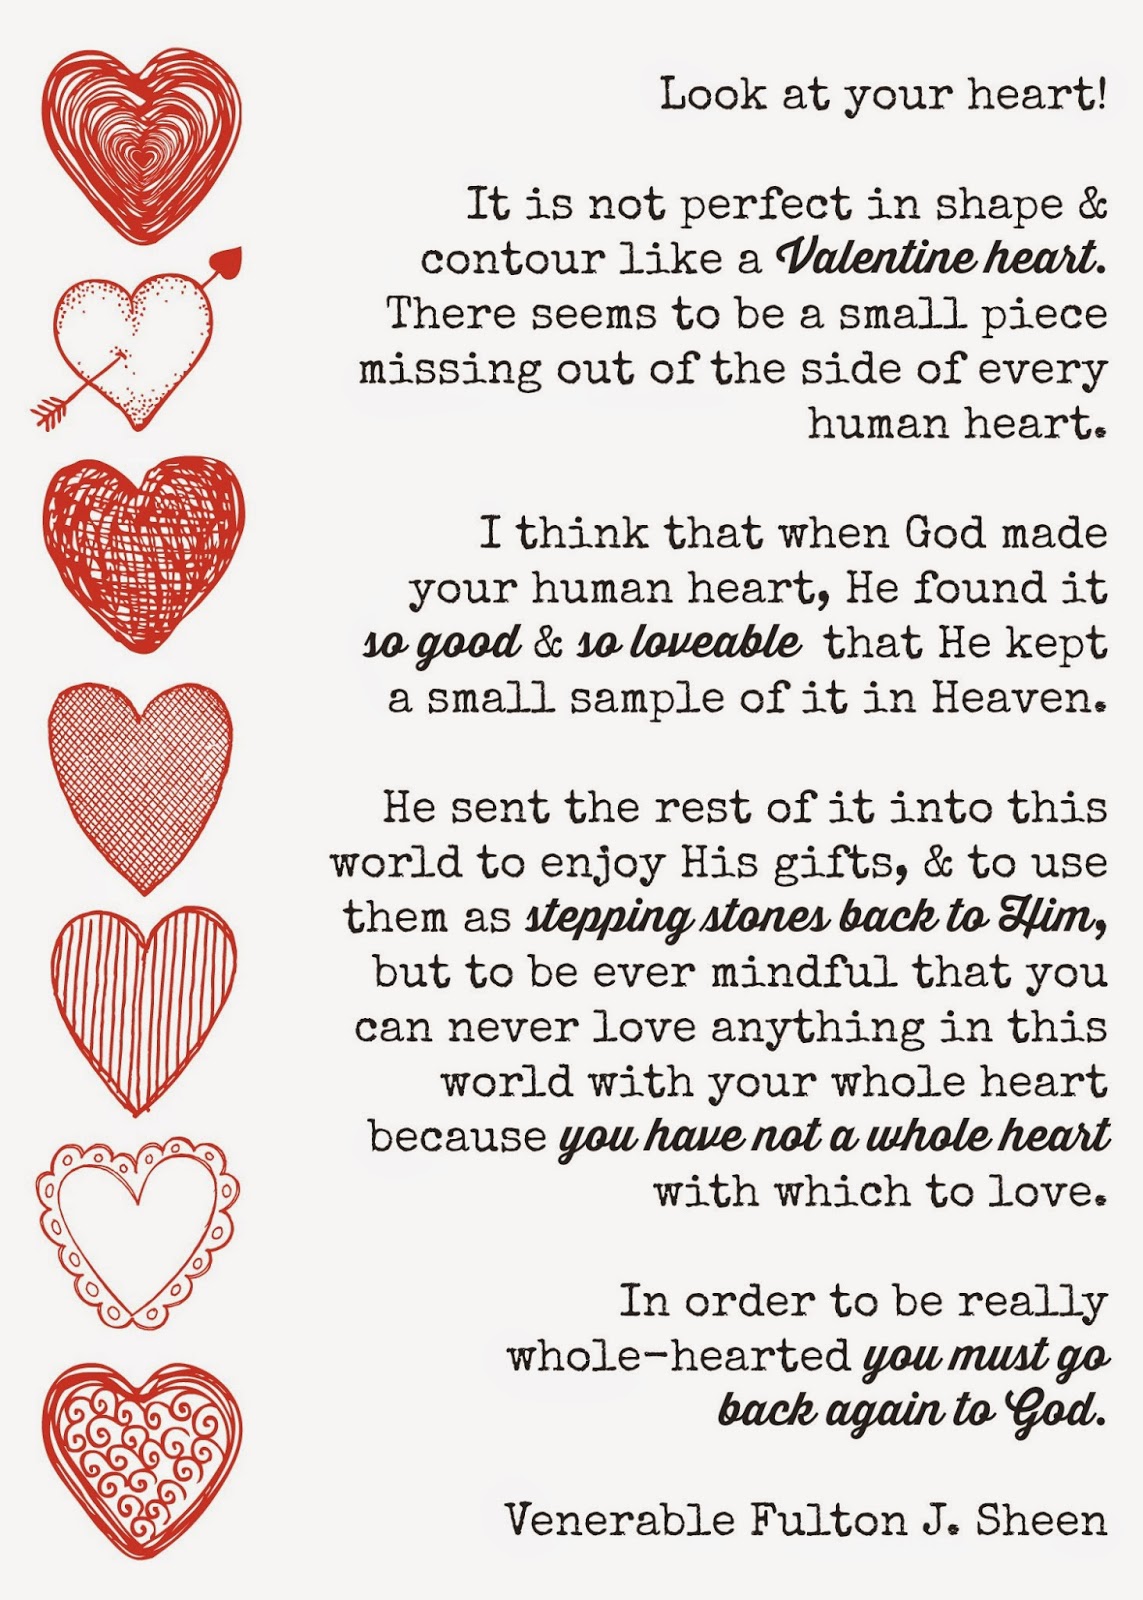 Look at your heart!
It is not perfect in shape &
contour like a Valentine heart.
There seems to be a small piece
missing out of the side of every
human heart.
I think that when God made
your human heart, He found it
so good & so loveable that He kept
a small sample of it in Heaven.
He sent the rest of it into this
world to enjoy His gifts, & to use
them as stepping stones back to Him,
but to be ever mindful that you
can never love anything in this
world with your whole heart
because you have not a whole heart
with which to love.
In order to be really
whole-hearted you must go
back again to God.
Venerable Fulton J. Sheen